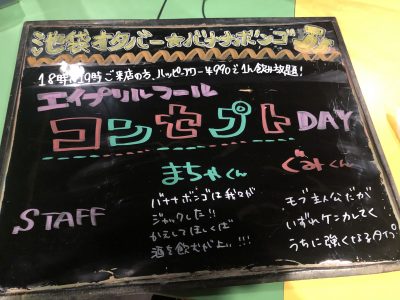 池袋オタバー☆バナナボンゴ
18時〜19時ご来店の方、ハッピーアワー¥990で1h飲み放題!
エイプリルフール
コンセプトDAY
まちゃくん
ぐみくん
STAFF
バナナボンゴは我々が
ジャックした!!
かえしてほしくば
酒を飲むがよい!!!
モブ主人公だが
いずれケンカしてく
うちに強くなるタイプ